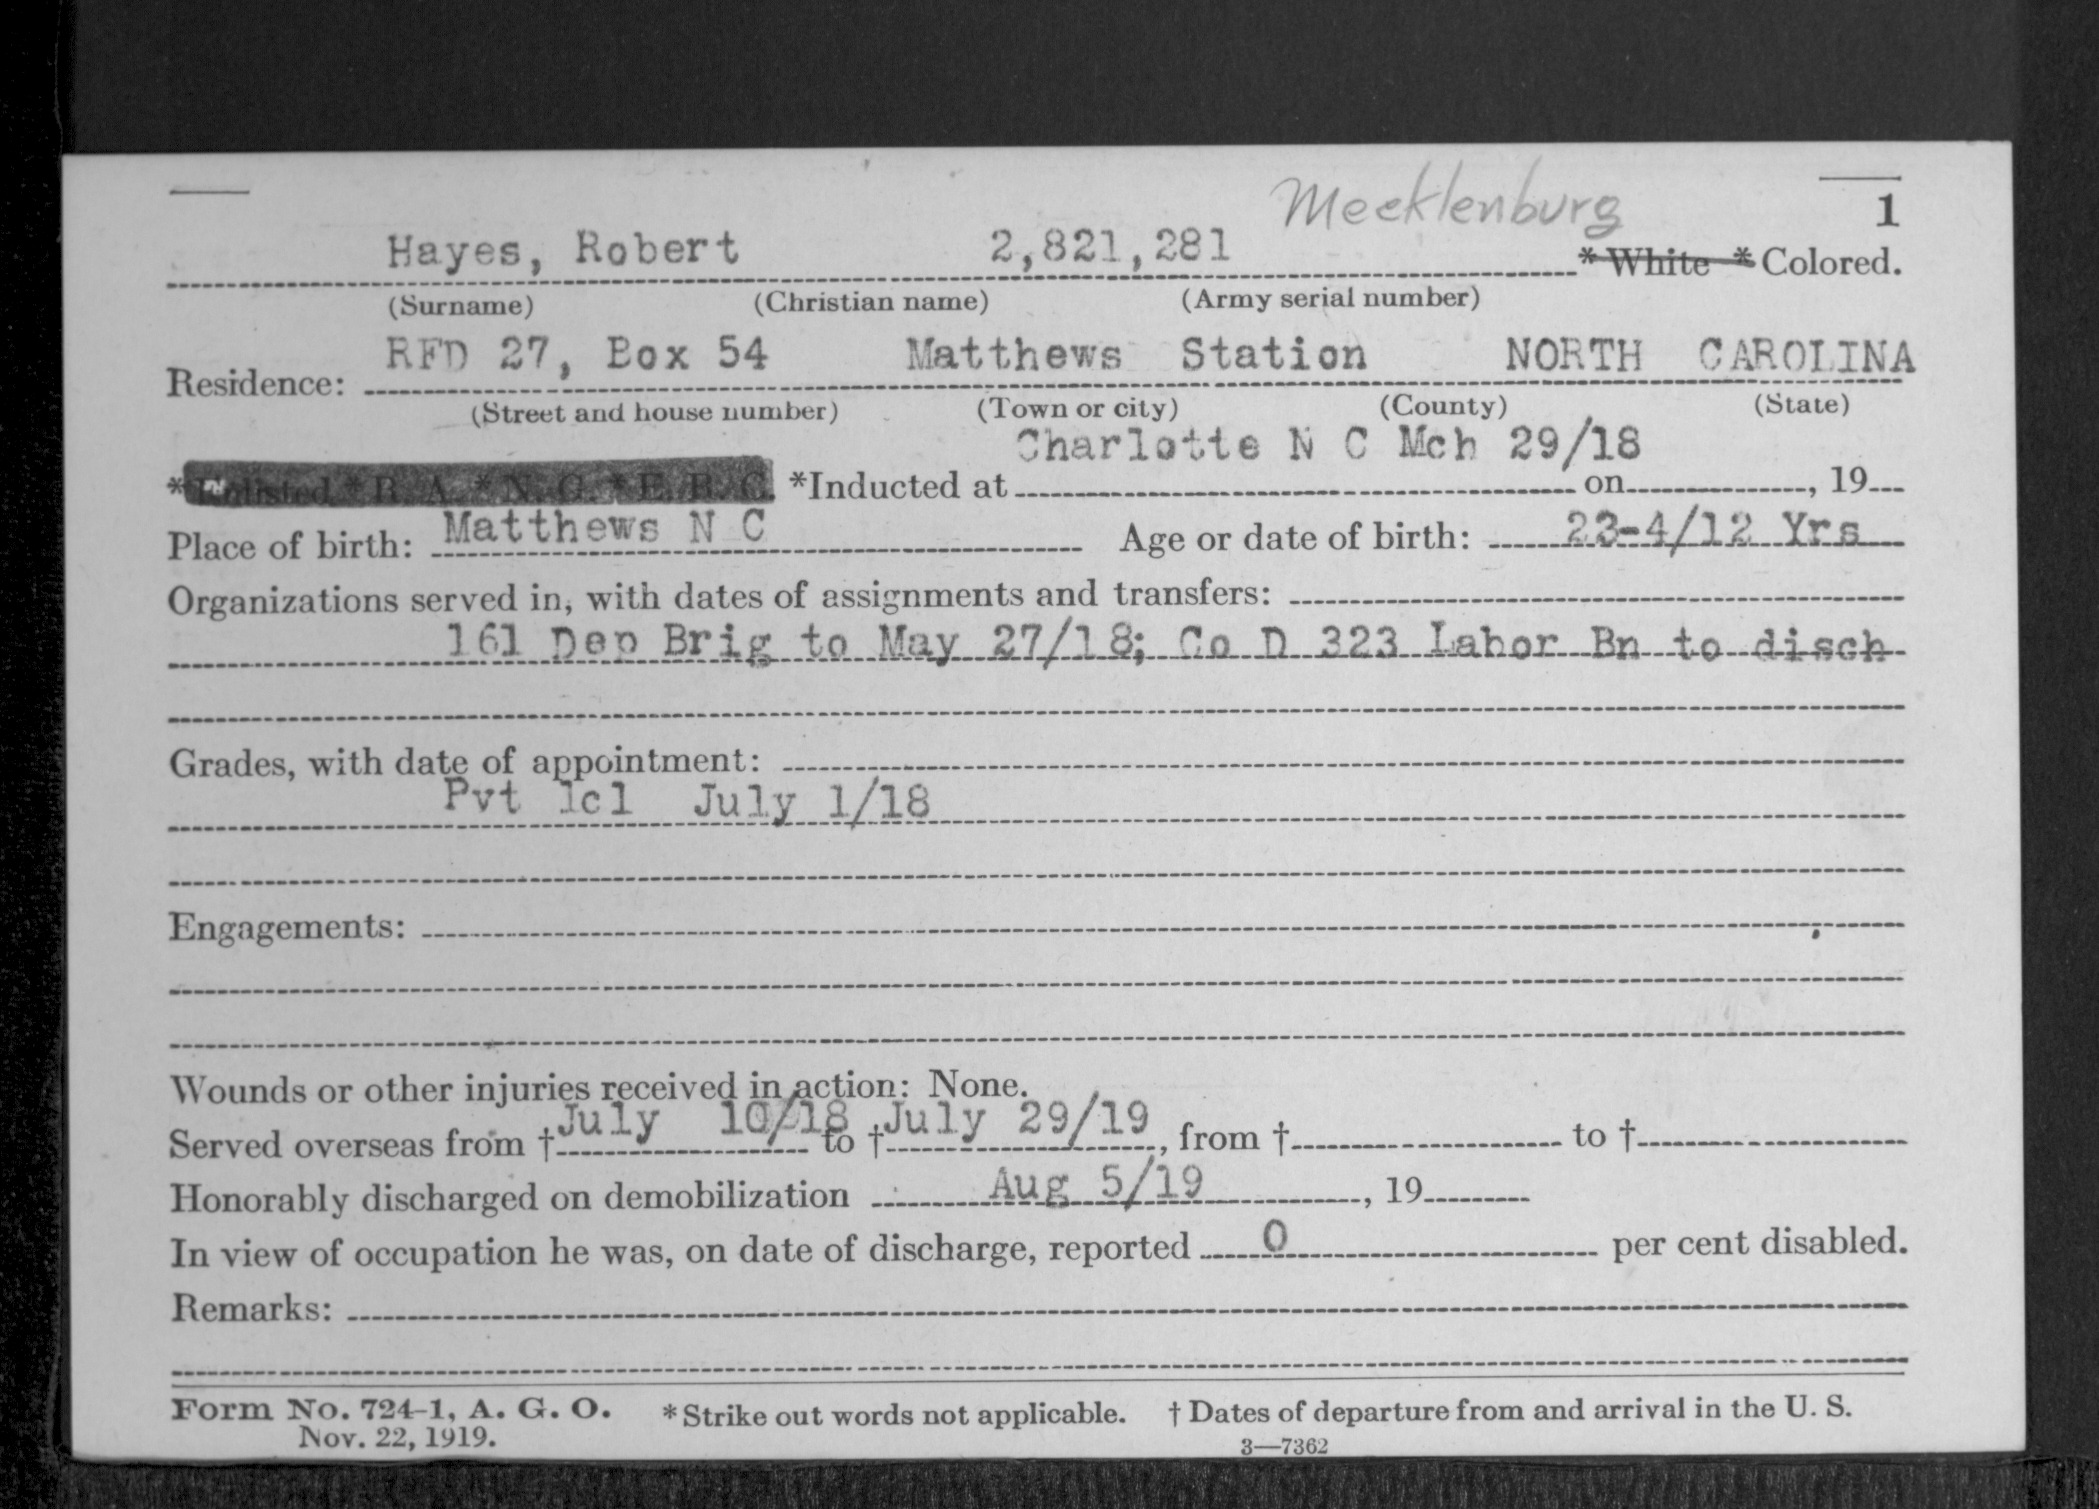 Mecklenburg 1
Hayes, Robert 2,821,281 * White * Colored.
(Surname) (Christian name) (Army serial number)
RFD 27, Box 54 Matthews Station NORTH CAROLINA
Residence:
(Street and house number) (Town or city) (County) (State)
Charlotte N C Mch 29/18
*Enlisted * R. A. * N. G. * E. R. C. *Inducted at on , 19
Place of birth: Matthews N C Age or date of birth: 23-4/12 Yrs
Organizations served in, with dates of assignments and transfers:
161 Dep Brig to May 27/18; Co D 323 Labor Bn to disch
Grades, with date of appointment:
Pvt 1cl July 1/18
Engagements:
Wounds or other injuries received in action: None.
Served overseas from † July 10/18 to † July 29/19, from † to †
Honorably discharged on demobilization Aug 5/19, 19
In view of occupation he was, on date of discharge, reported 0 per cent disabled.
Remarks:
Form No. 724-1, A. G. O. * Strike out words not applicable. † Dates of departure from and arrival in the U. S.
Nov. 22, 1919. 3—7362